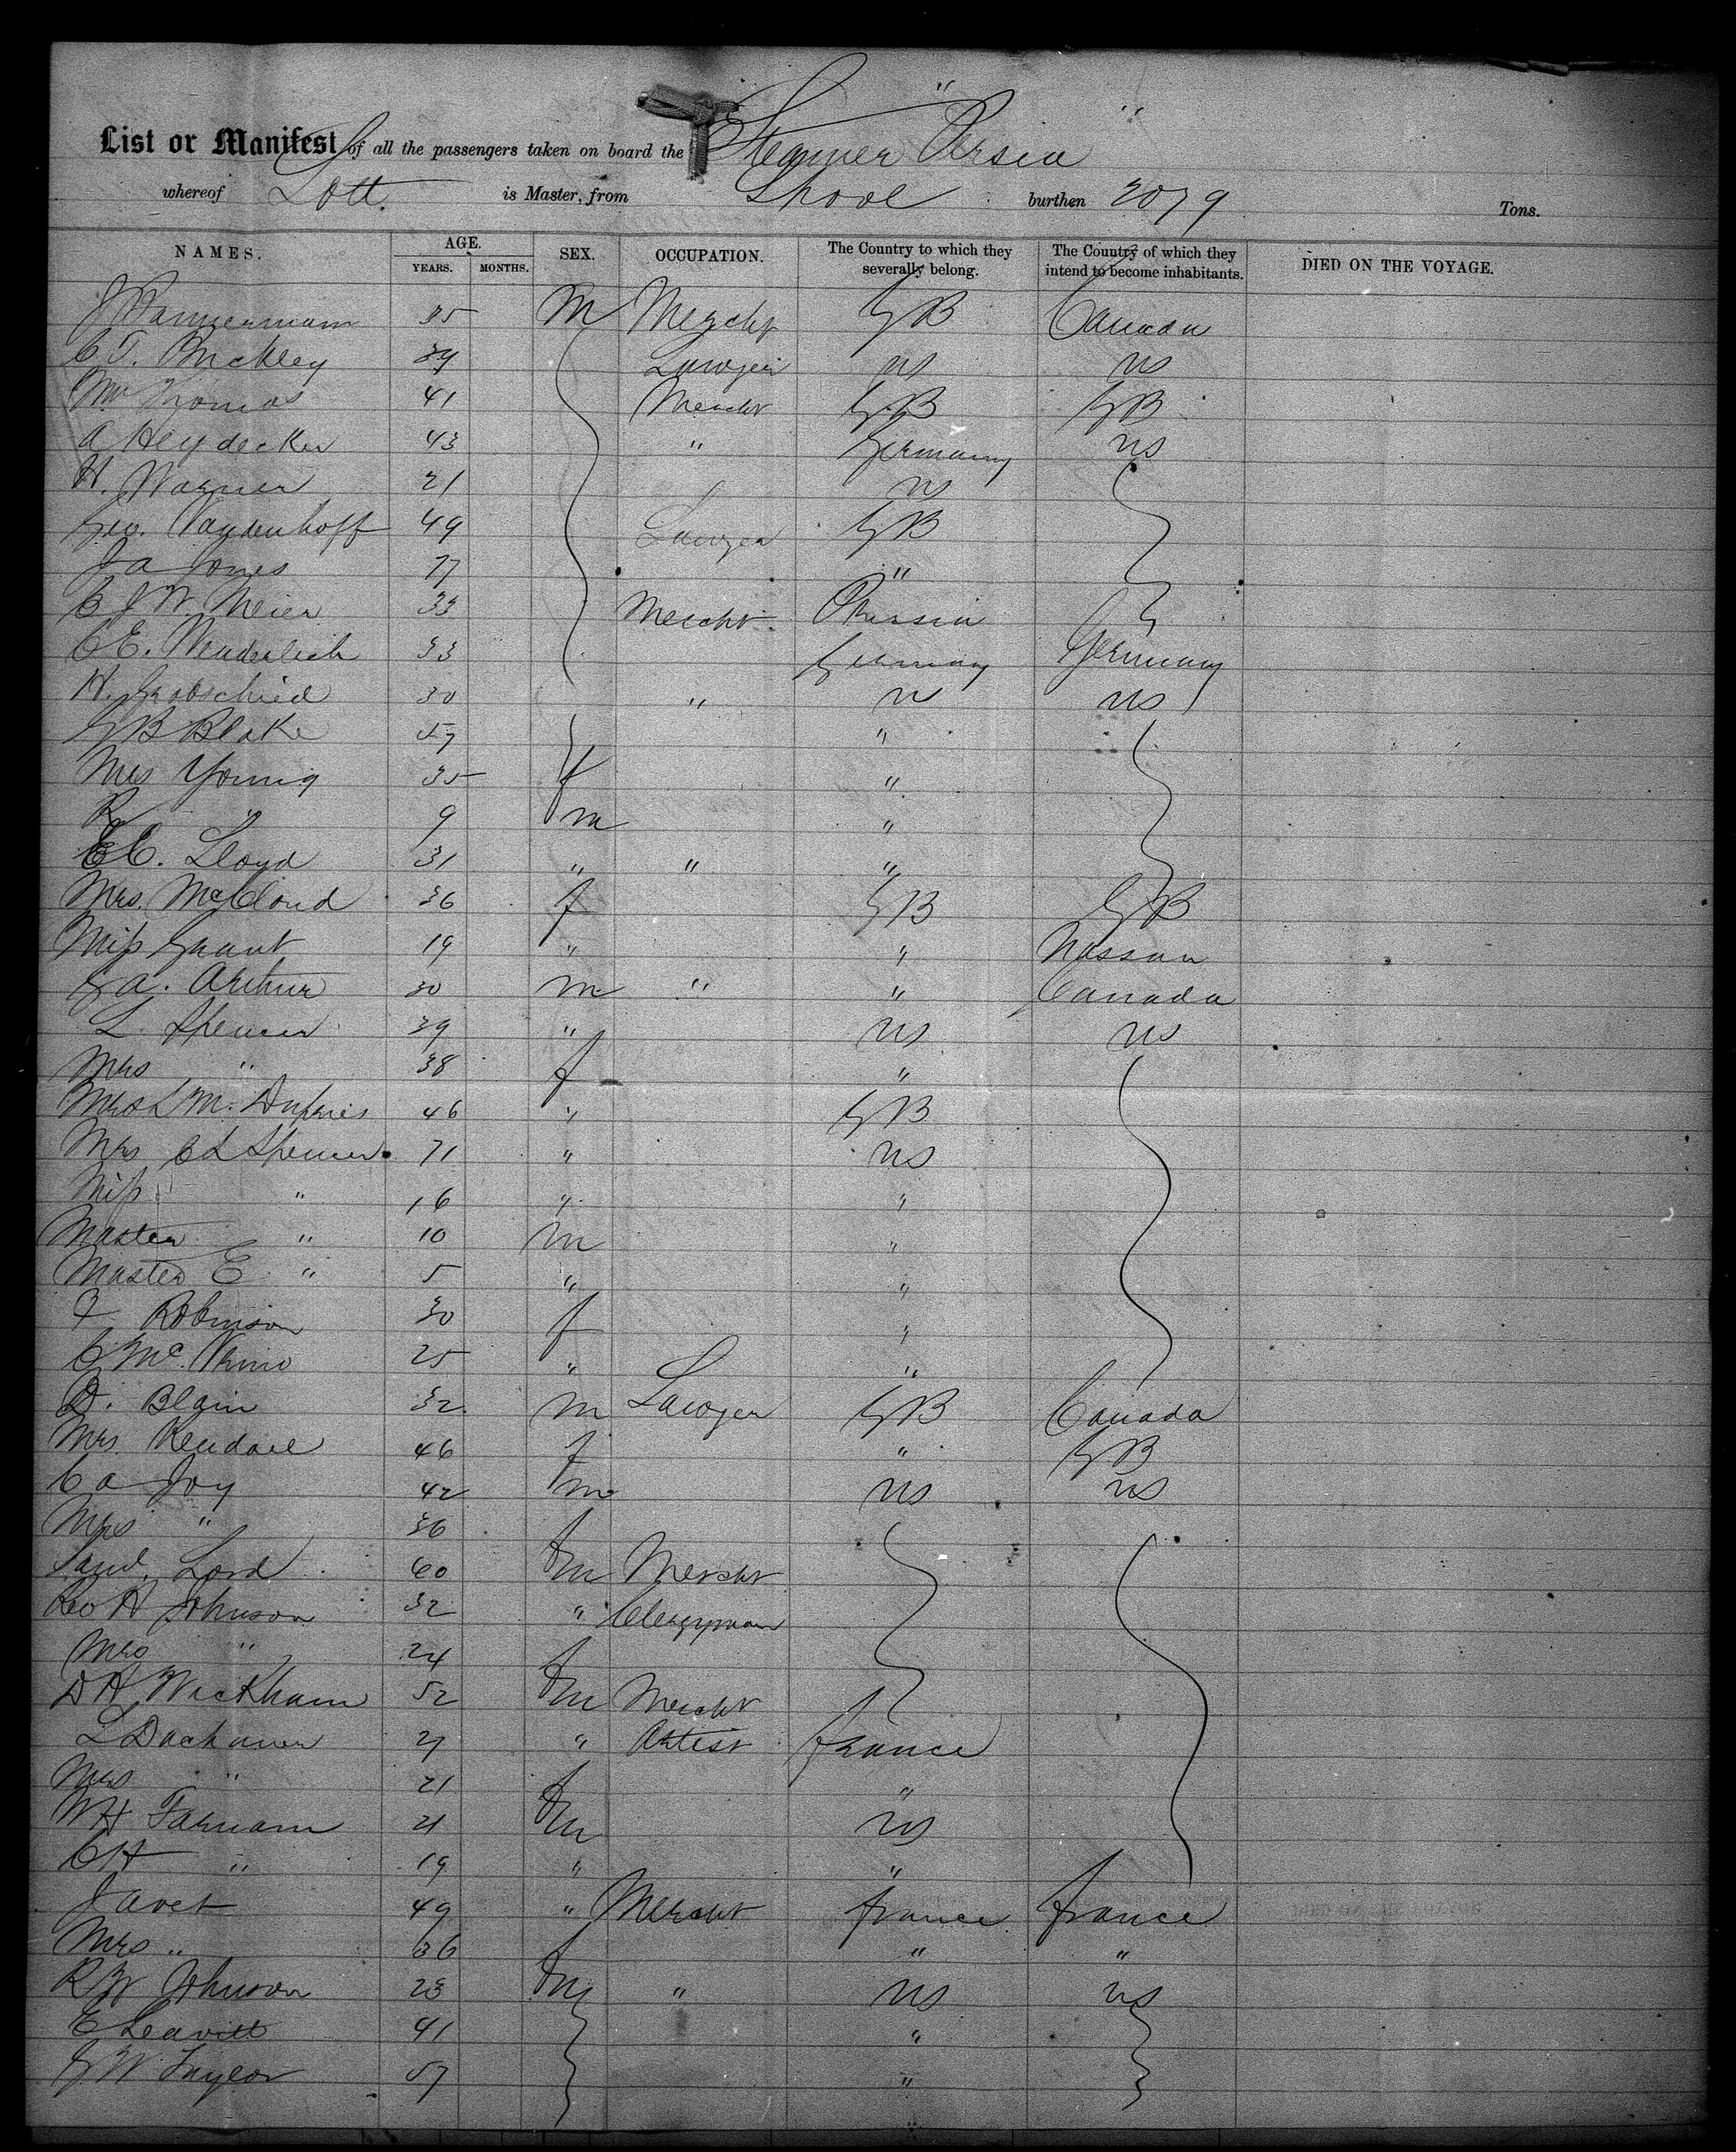 List or Manifest of all the passengers taken on board the Steamer "Persia"
whereof Lott. is Master, from Lpool burthen 2079 Tons.
NAMES. AGE. YEARS. MONTHS. SEX. OCCUPATION. The Country to which they severally belong. The Country of which they intend to become inhabitants. DIED ON THE VOYAGE.
J Bannerman 35 M Mercht GB Canada
C. T. Buckley 39 Lawyer US US
Mr Thomas 41 Mercht GB GB
A Heydecker 43 " Germany US
H. Warner 21 US
Geo. Vandenhoff 49 Lawyer GB
J A Jones 77 "
C J W. Meier 33 Mercht. Prussia
C E. Wenderlich 33 Germany Germany
H. Grobschied 30 " US
G B Blake 57 "
Mrs Young 35 f "
R " 9 m "
E C. Lloyd 31 " " "
Mrs. McCloud 36 f GB GB
Miss Grant 19 " " Nassau
G A. Arthur 30 m " " Canada
L. Spencer 39 " US US
Mrs " 38 f "
Mrs L M. 46 " GB
Mrs C L Spencer 71 " US
Miss " 16 " "
Master " 10 m "
Master E " 5 " "
F Robinson 30 f "
C Mc. 25 " "
D. Blain 32 m Lawyer GB Canada
Mrs. Kendall 46 f " GB
C A Joy 42 m US US
Mrs " 36 f
Saml. Lord 60 m Mercht
Rev H Johnson 32 " Clergyman
Mrs " 24 f
D H Wickham 52 m Mercht
L Dachauer 27 " Artist France
Mrs " 21 f "
W H Farnam 21 m US
C H " 19 " "
Javet 49 " Mercht France France
Mrs " 36 f " "
R W Johnson 23 m " US US
E Leavitt 41 "
G W Taylor 57 "